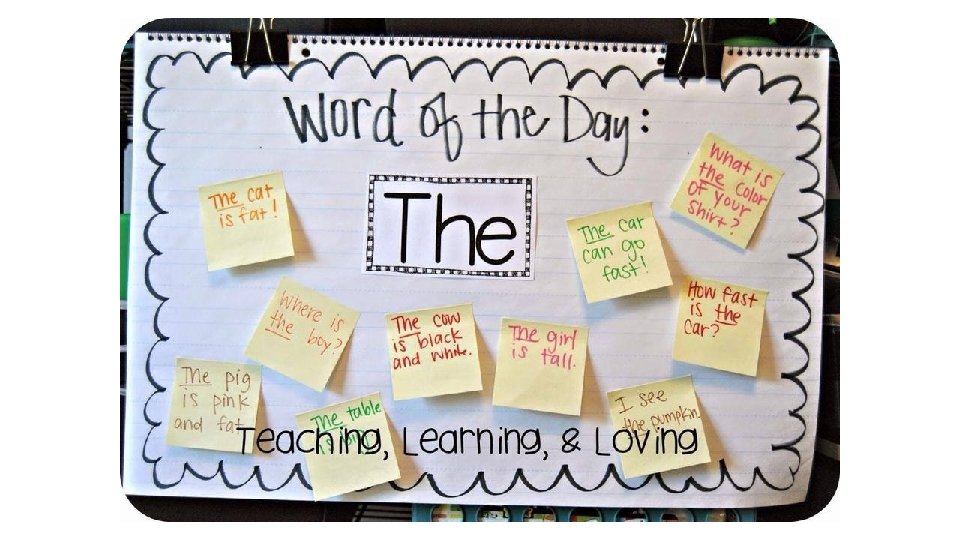 Word of the Day:
The
The cat
is fat!
The car
can go
fast!
What is
the color
of your
shirt?
Where is
the boy?
The cow
is black
and white.
The girl
is tall.
How fast
is the
car?
The pig
is pink
and fat
The table
I see
the pumpkin
Teaching, Learning, & Loving